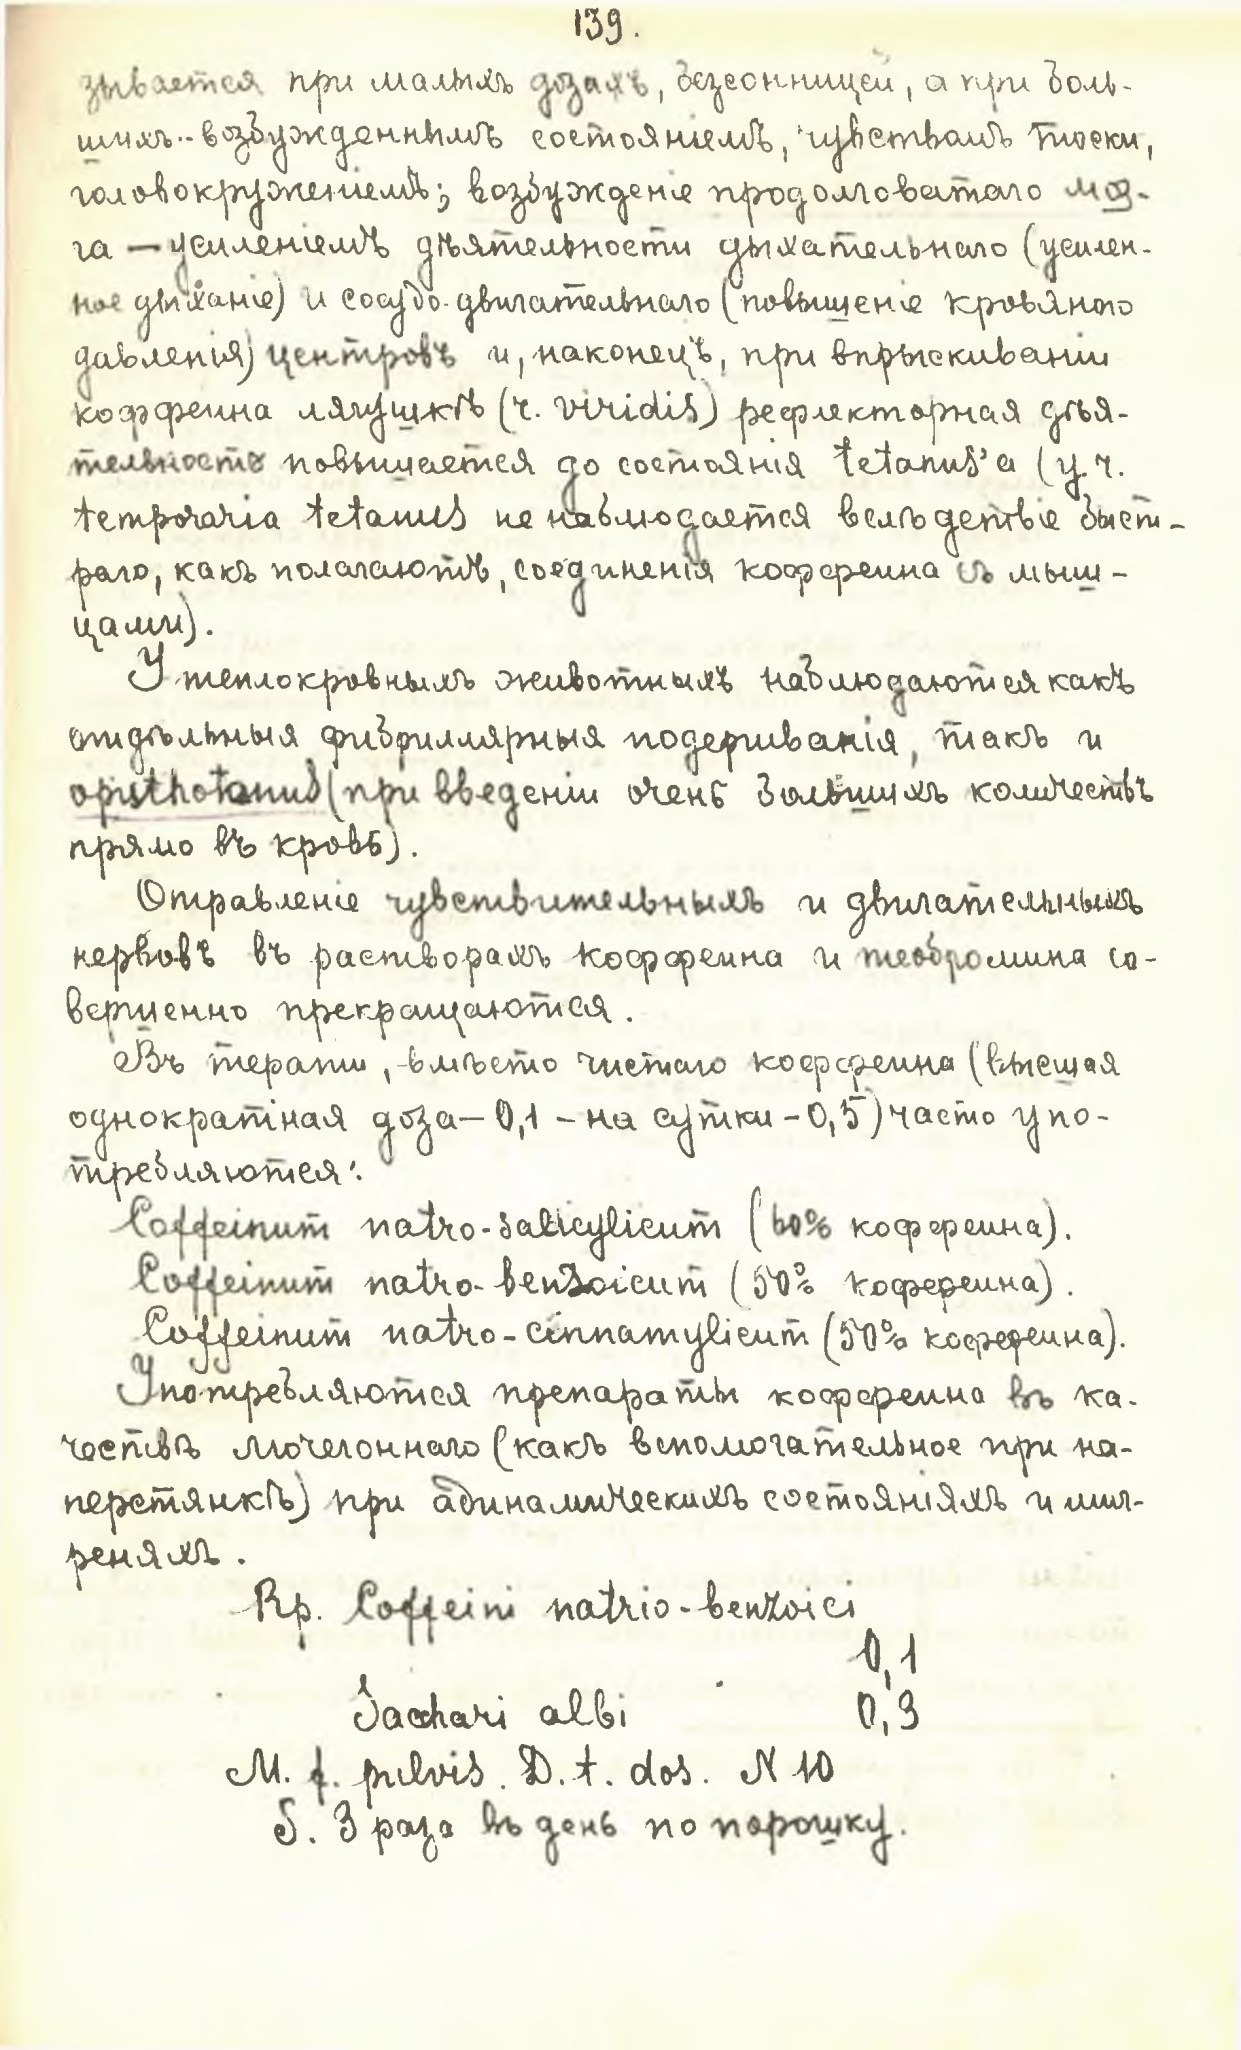 139.
зывается при малыхъ дозахъ, безсонницей, а при боль-
шихъ - возбужденнымъ состояніемъ, чувствомъ тоски,
головокруженіемъ; возбужденіе продолговатаго моз-
га — усиленіемъ дѣятельности дыхательнаго (усилен-
ное дыханіе) и сосудо-двигательнаго (повышеніе кровяного
давленія) центровъ и, наконецъ, при впрыскиваніи
коффеина лягушкѣ (r. viridis) рефлекторная дѣя-
тельность повышается до состоянія tetanus'а (у r.
temporaria tetanus не наблюдается вслѣдствіе быст-
раго, какъ полагаютъ, соединенія коффеина съ мыш-
цами).
У теплокровныхъ животныхъ наблюдаются какъ
отдѣльныя фибриллярныя подергиванія, такъ и
opisthotanus (при введеніи очень большихъ количествъ
прямо въ кровь).
Отравленіе чувствительныхъ и двигательныхъ
нервовъ въ растворахъ коффеина и теобромина со-
вершенно прекращаются.
Въ терапіи, вмѣсто чистаго коффеина (высшая
однократная доза — 0,1 - на сутки - 0,5) часто упо-
требляются:
Coffeinum natro-salicylicum (60% коффеина).
Coffeinum natro-benzoicum (50% коффеина).
Coffeinum natro-cinnamylicum (50% коффеина).
Употребляются препараты коффеина въ ка-
чествѣ мочегоннаго (какъ вспомогательное при на-
перстянкѣ) при адинамическихъ состояніяхъ и миг-
реняхъ.
Rp. Coffeini natrio-benzoici
0,1
Sacchari albi 0,3
M. f. pulvis. D. t. dos. N 10
S. 3 раза въ день по порошку.